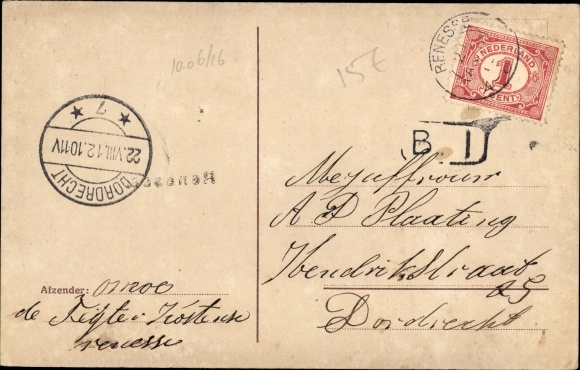 10.06/16
15€
RENESSE
NEDERLAND
1
CENT
B I
DORDRECHT
22.VIII.12.10-11V
7
Renesse
Mejuffrouw
A D Plaating
Hendrikstraat
25
Dordrecht
Afzender:
de
renesse